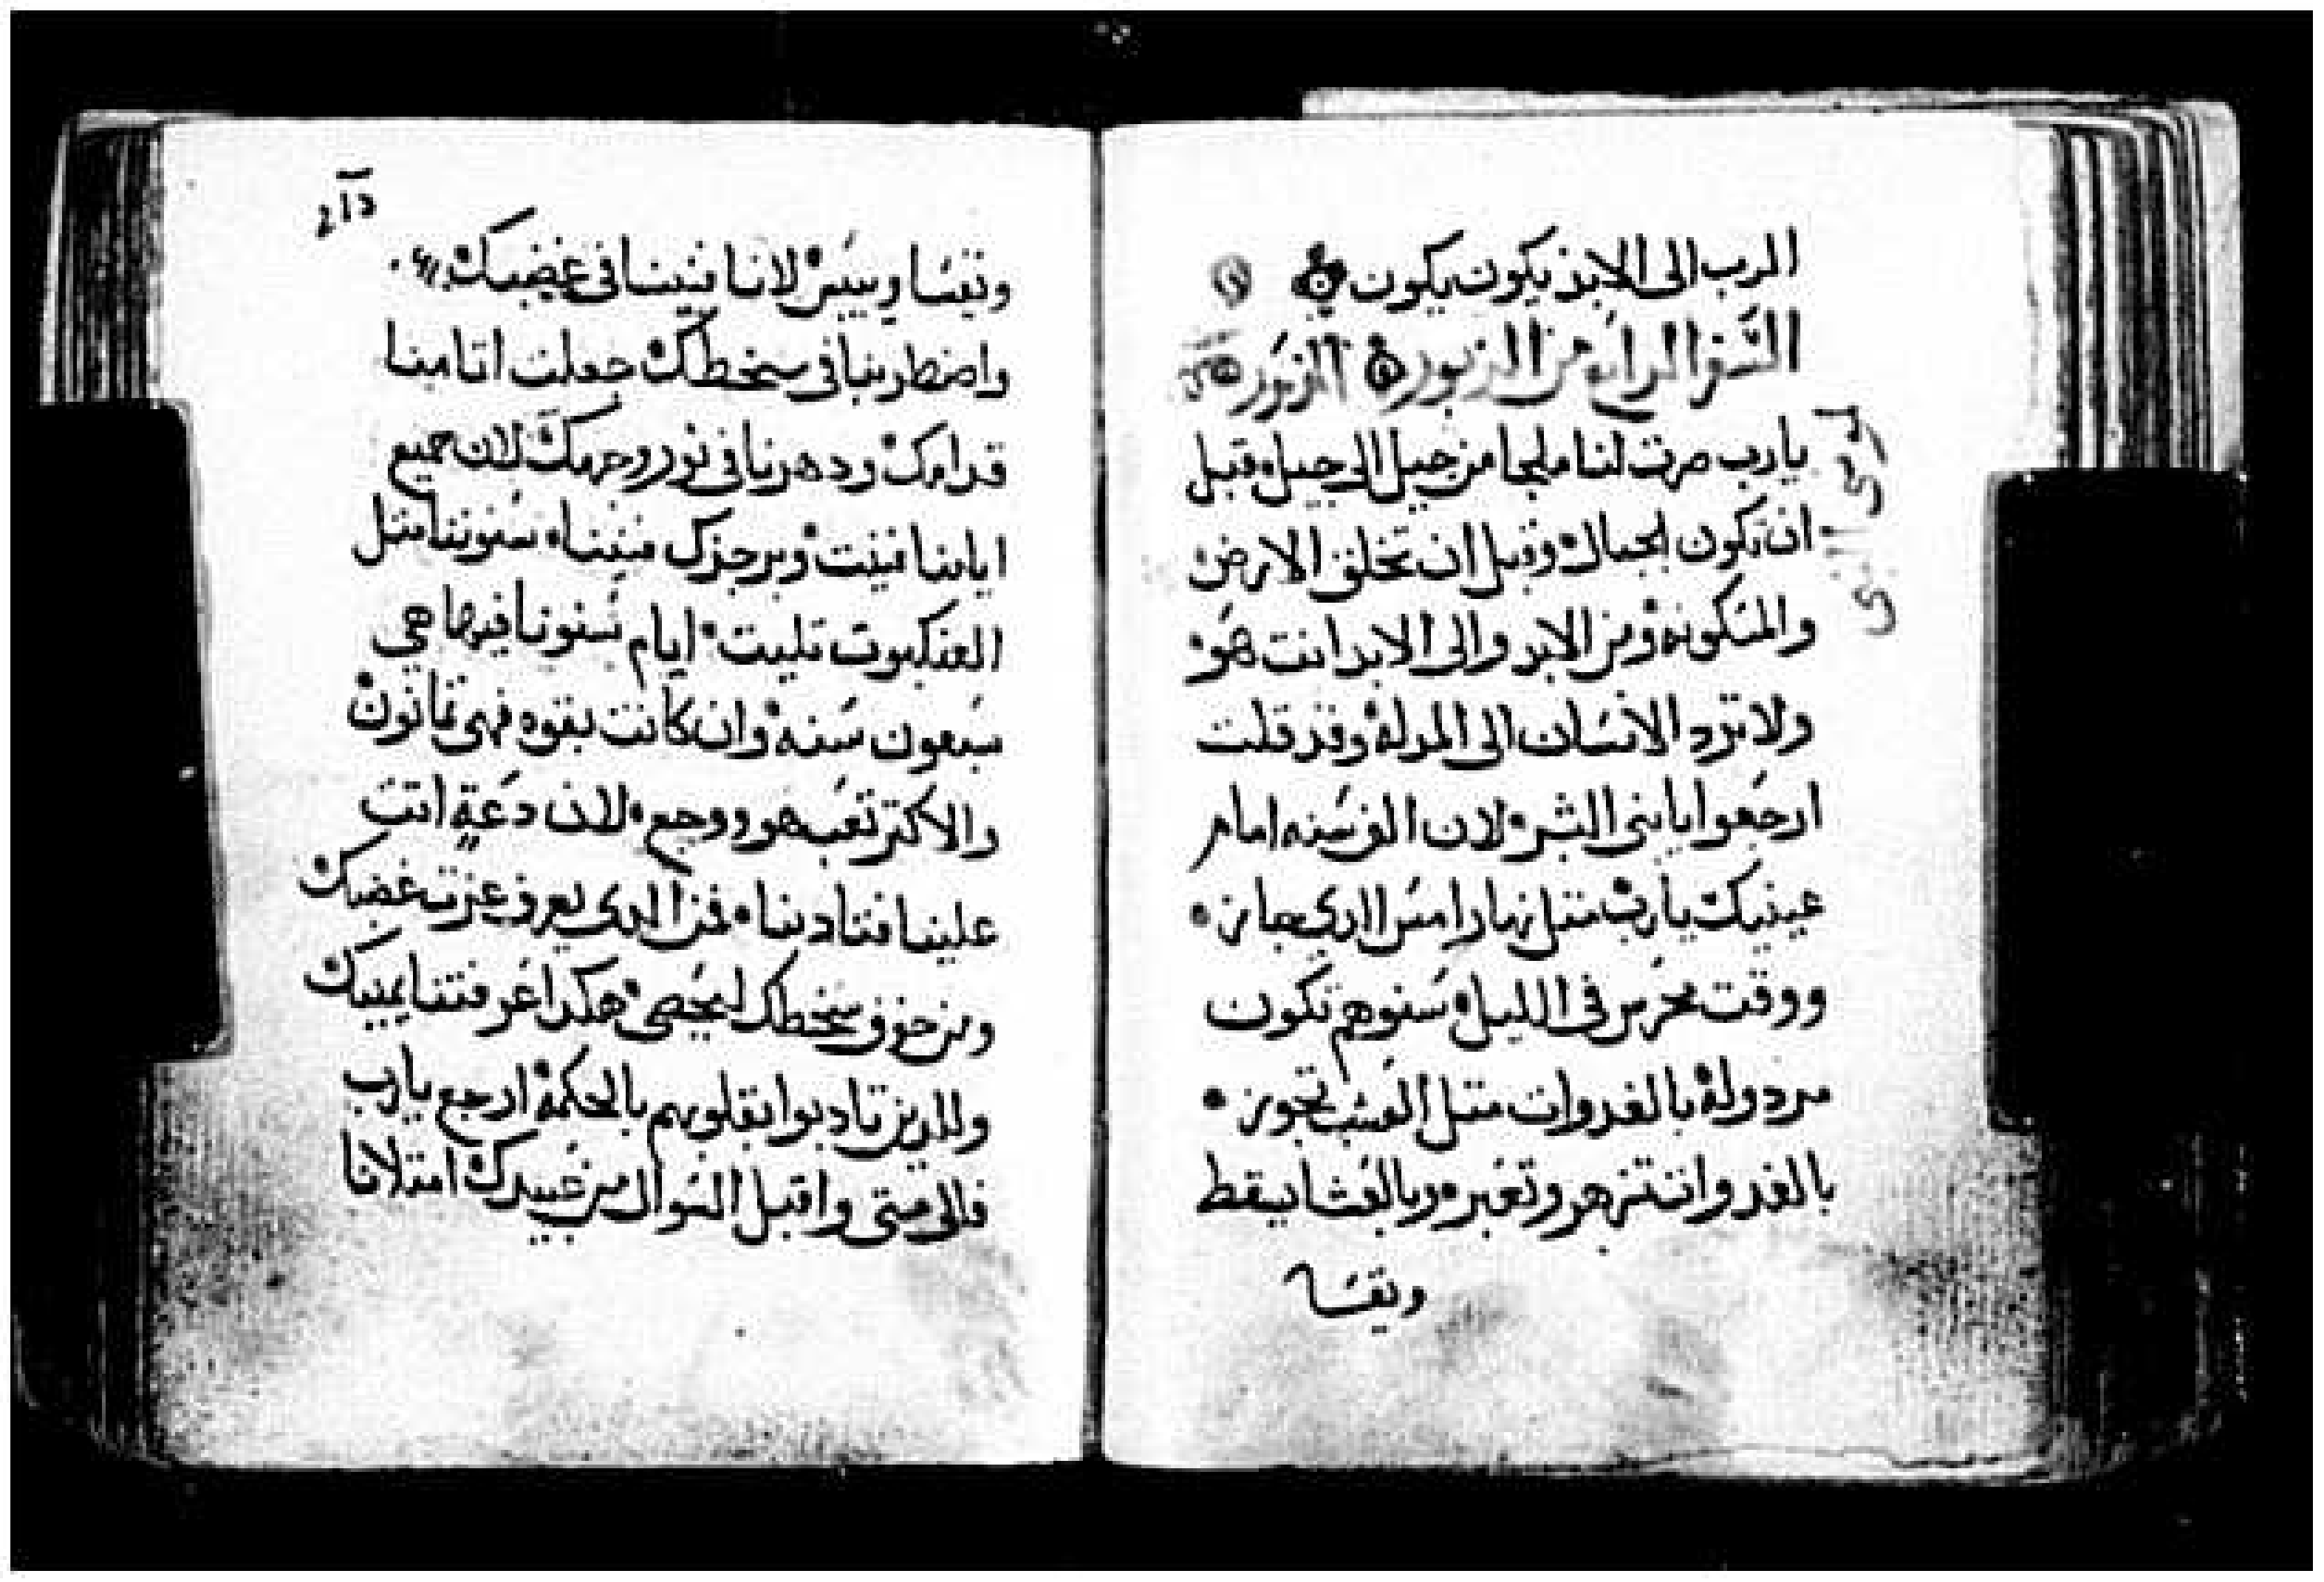 الرب الى الابد يكون يكون
السفر الرابع من الزبور الزبور
يارب صرت لنا ملجا من جيل الى جيل وقبل
ان تكون الجبال وقبل ان تخلق الارض
والمسكونه ومن الابد والى الابد انت هو
ولا ترد الانسان الى المدله وقد قلت
ارجعوا يا بنى البشر لان الف سنه امام
عينيك يارب متل نهار امس الدي جاز
ووقت محرس فى الليل سنوهم تكون
مردوله بالغدوات متل العشب تجوز
بالغدوات تزهر وتعبر وبالعشا يسقط
ويقسا
وتقسا وييبس لاننا فنينا فى غضبك
واضطربنا فى سخطك جعلت اتامنا
قدامك ودهرنا فى نور وجهك لان جميع
ايامنا فنيت وبرجزك فنينا سنوننا متل
العنكبوت تليت ايام سنوننا فيها هي
سبعون سنه وان كانت بقوه فهى تمانون
والاكتر تعب هو ووجع لان دعة اتت
علينا فتادبنا فمن الدى يعرف عزت غضبك
ومن خوف سخطك ليحصى هكدا عرفتنا يمينك
وللدين تادبوا بقلوبهم بالحكمه ارجع يارب
فالى متى واقبل السوال من عبيدك امتلانا